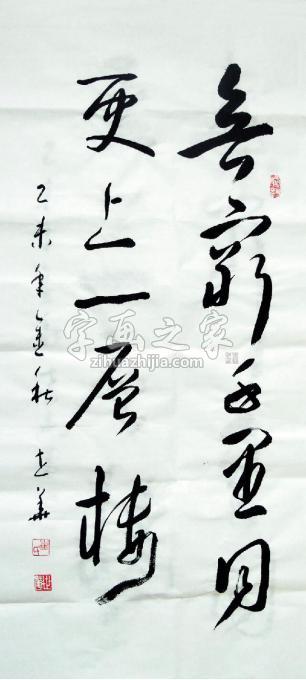 無窮千里目
更上一層楼
乙未年金秋 志華
字画之家
zihuazhijia.com